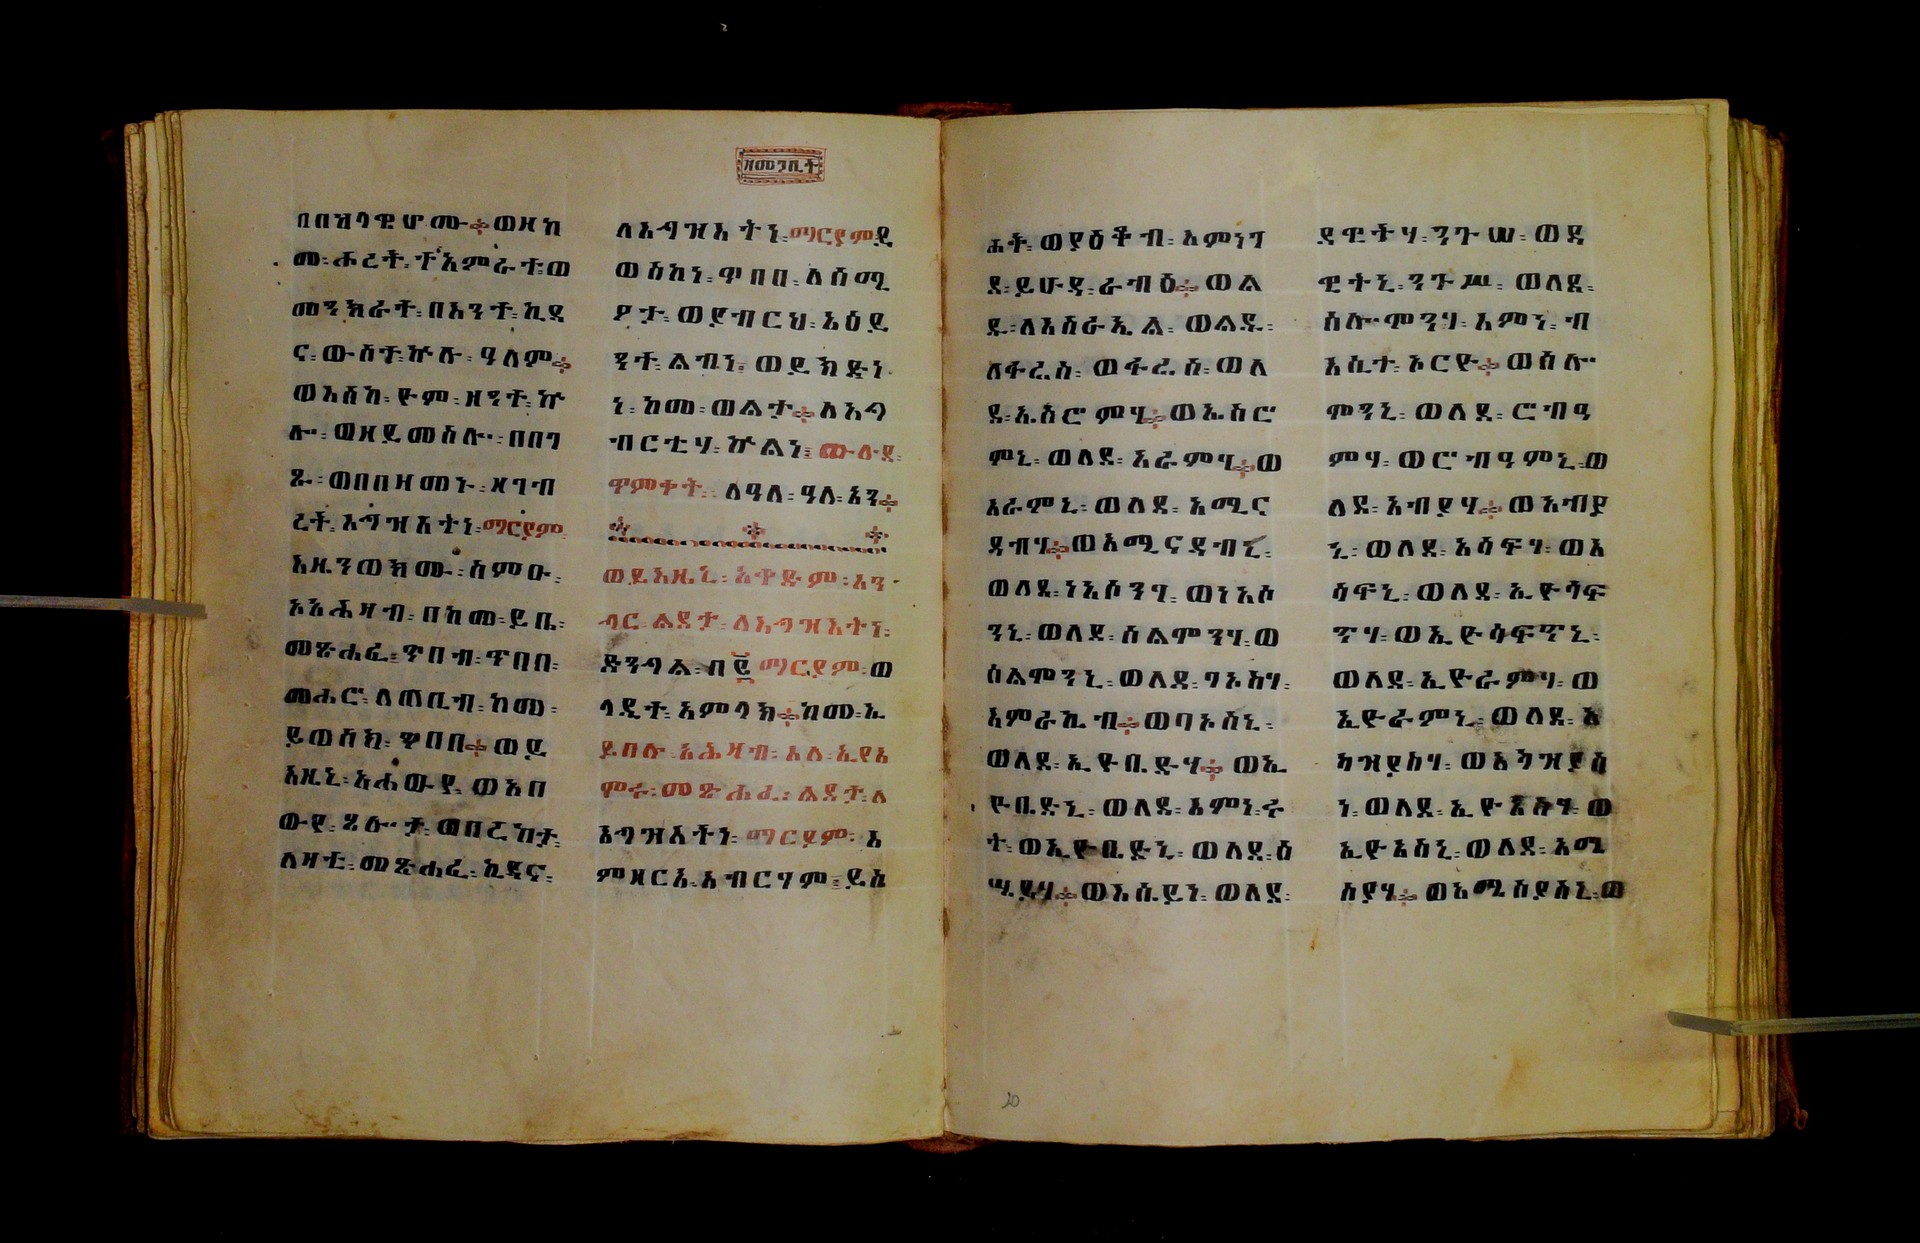 ዘመጋቢት
በበኅላዊሆሙ፨ወዛከ
መ፡ሐረት፡ተአምራተ፡ወ
መንክራት፡በእንተ፡ኪዳ
ና፡ውስተ፡ኵሉ፡ዓለም፨
ወእስከ፡ዮም፡ዘንተ፡ኵ
ሎ፡ወዘይመስሎ፡በበገ
ጹ፡ወበበዛመኑ፡ዛገብ
ረት፡እግዝእትነ፡ማርያም፡
አዚንወክሙ፡ስምዑ፡
ኦአሕዛብ፡በከመ፡ይቤ፡
መጽሐፈ፡ጥበብ፡ጥበበ፡
መሐሮ፡ለጠቢብ፡ከመ፡
ይወስክ፡ጥበበ፨ወይ
እዚኒ፡አሐውየ፡ወአበ
ውየ፡ጸሎታ፡ወበረከታ፡
ለዛቲ፡መጽሐፈ፡ኪዳና፡
ለእግዝእትነ፡ማርያምይ
ወስከነ፡ጥበበ፡ለሰሚ
ዖታ፡ወያብርህ፡አዕይ
ንተ፡ልብነ፡ወይክድነ
ነ፡ከመ፡ወልታ፨ለአግ
ብርቲሃ፡ኵልነ፡ውሉደ፡
ጥምቀት፡ለዓለ፡ዓለ፡አን፨
ወይእዜኒ፡አቅድም፡አን
ሳር፡ልደታ፡ለእግዝእትነ፡
ድንግል፡በ፪ማርያም፡ወ
ላዲተ፡አምላክ፨ከመ፡ኢ
ይበሉ፡አሕዛብ፡እለ፡ኢየአ
ምሩ፡መጽሐፈ፡ልደታ፡ለ
እግዝእትነ፡ማርያም፡እ
ምዘርእ፡አብርሃም፡ይእ
ሐት፡ወያዕቆብ፡እምነገ
ደ፡ይሁዳ፡ራብዕ፨ወል
ዱ፡ለእስራኢል፡ወልዱ፡
ለፋሬስ፡ወፋሬስ፡ወለ
ደ፡ኤስሮምሃ፨ወኤስሮ
ምኒ፡ወለደ፡አራምሃ፨ወ
አራምኒ፡ወለደ፡አሚና
ዳብሃ፨ወአሚናዳብኒ፡
ወለደ፡ነአሶንሃ፡ወነአሶ
ንኒ፡ወለደ፡ሰልሞንሃ፡ወ
ሰልሞንኒ፡ወለደ፡ቦኦስሃ፡
እምራኬብ፨ወባኦስኒ፡
ወለደ፡ኢዮቤድሃ፨ወኢ
ዮቤድኒ፡ወለደ፡እምነ፡ሩ
ት፡ወኢዮቤድኒ፡ወለደ፡ዕ
ሤይሃ፨ወእሴይነ፡ወለደ፡
ዳዊትሃ፡ንጉሠ፡ወዳ
ዊትኒ፡ንጉሥ፡ወለደ፡
ሰሎሞንሃ፡እምነ፡ብ
እሲተ፡ኦርዮ፨ወሰሎ
ሞንኒ፡ወለደ፡ሮብዓ
ምሃ፡ወሮብዓምኒ፡ወ
ለደ፡አብያሃ፨ወአብያ
ኒ፡ወለደ፡አሳፍሃ፡ወአ
ሳፍኒ፡ወለደ፡ኢዮሳፍ
ጥሃ፡ወኢዮሳፍጥኒ፡
ወለደ፡ኢዮራምሃ፡ወ
ኢዮራምኒ፡ወለደ፡አ
ካዝያስሃ፡ወአካዝያስ
ኒ፡ወለደ፡ኢዮአስሃ፡ወ
ኢዮአስኒ፡ወለደ፡አሜ
ስያሃ፨ወአሜስያስኒ፡ወ